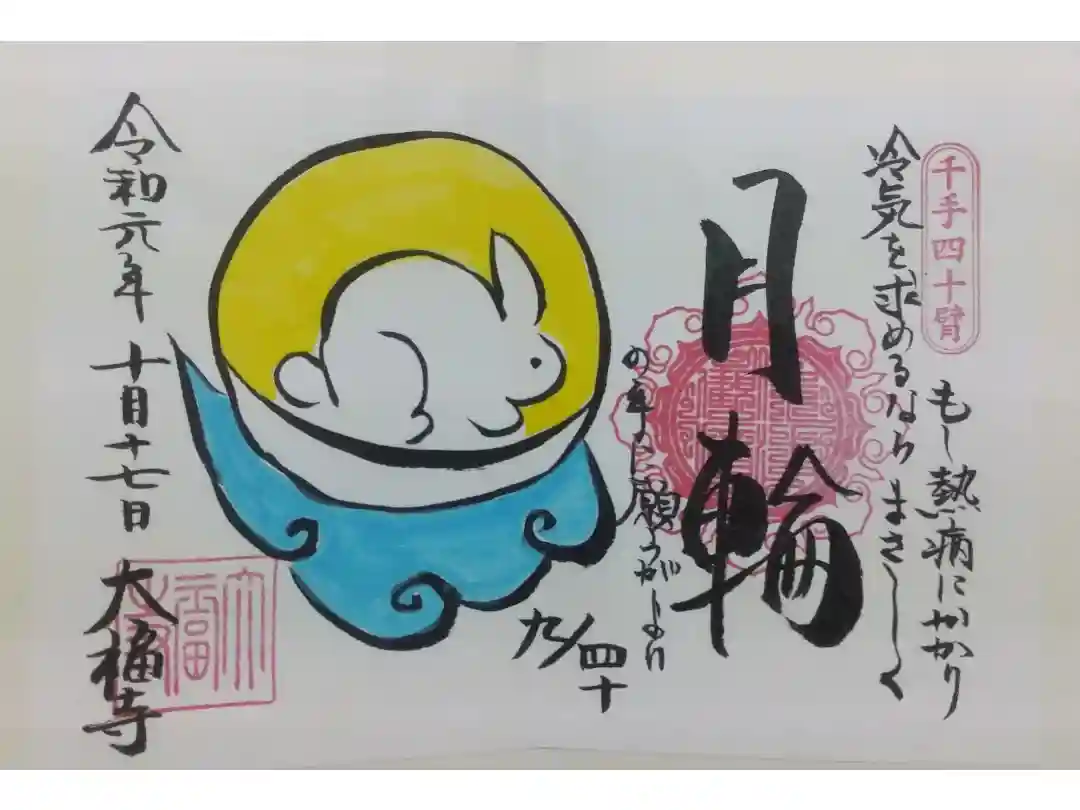 千手四十臂
もし熱病にかかり
冷気を求めるなら まさしく
月輪
の手に願うがよい
九/四十
令和元年 十月十七日 大福寺